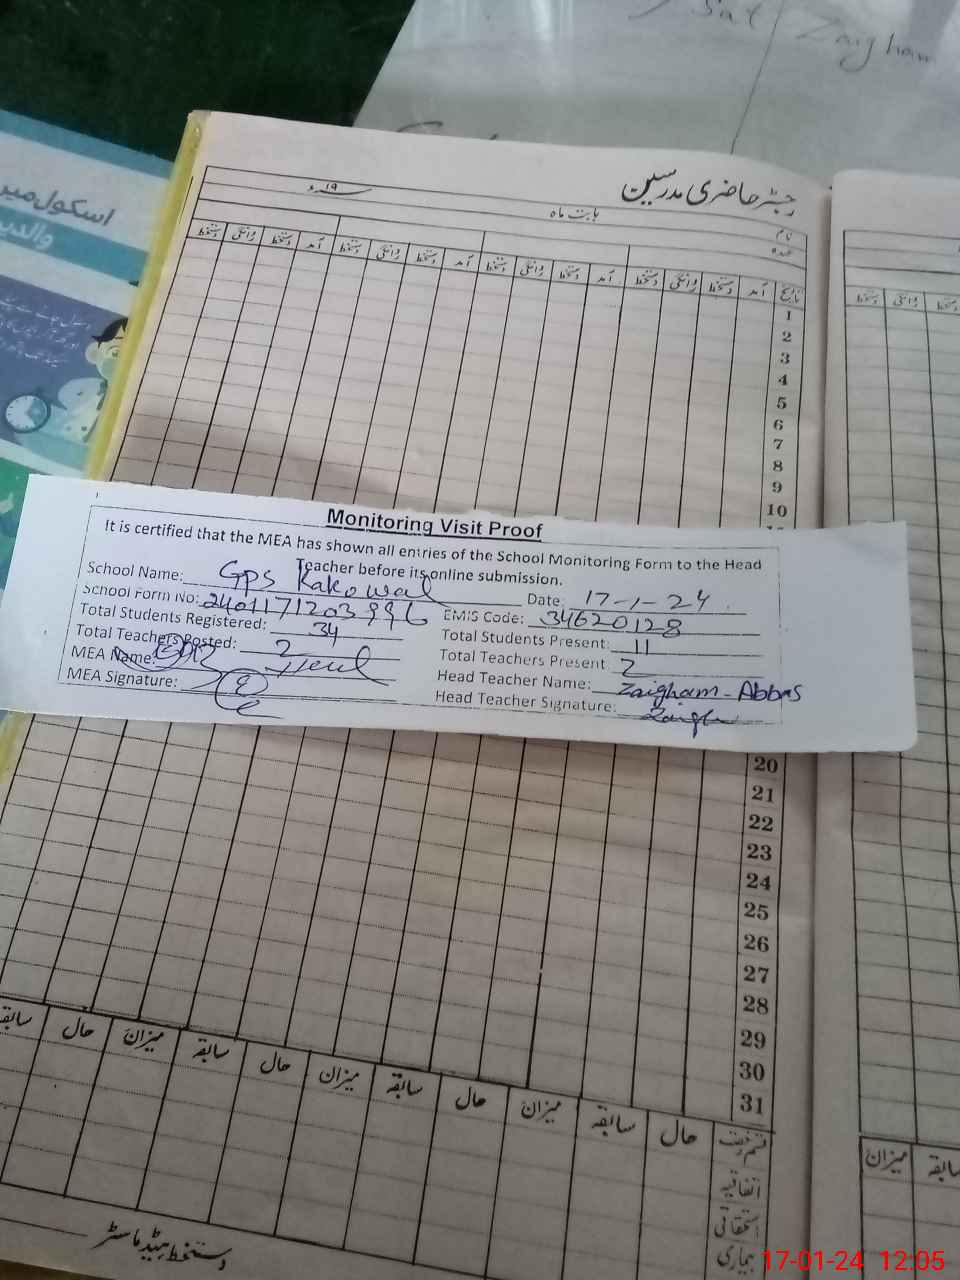 Sat Zaigham
اسکول میں
والدین
رجسٹر حاضری مدرسین
بابت ماہ ۱۹ء
نام
عہدہ
تاریخ آمد دستخط روانگی دستخط آمد دستخط روانگی دستخط آمد دستخط روانگی دستخط آمد دستخط روانگی دستخط
دستخط روانگی
1
2
3
4
5
6
7
8
9
10
Monitoring Visit Proof
It is certified that the MEA has shown all entries of the School Monitoring Form to the Head
Teacher before its online submission.
School Name: Gps Kakowal Date: 17-1-24
School Form No: EMIS Code: 34620128
Total Students Registered: 34 Total Students Present: 11
Total Teachers Posted: 2 Total Teachers Present: 2
MEA Name: Head Teacher Name: Zaigham-Abbas
MEA Signature: Head Teacher Signature:
20
21
22
23
24
25
26
27
28
29
30
31
قسم رخصت حال سابقہ میزان حال سابقہ میزان حال سابقہ میزان حال سابقہ
میزان سابقہ
اتفاقیہ
استحقاقی
بیماری
دستخط ہیڈ ماسٹر
17-01-24 12:05